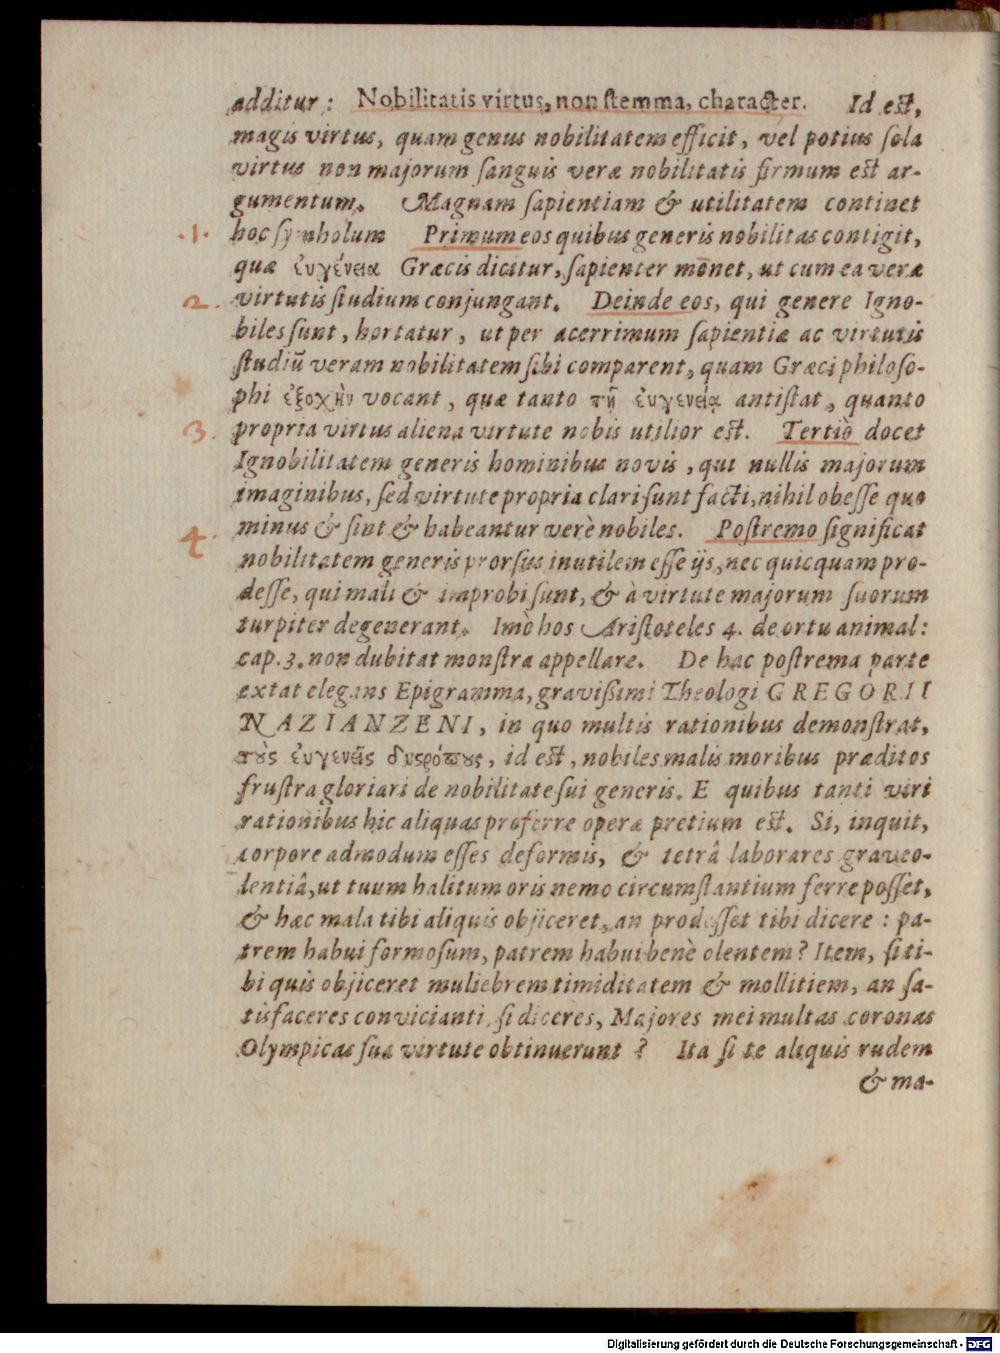 additur: Nobilitatis virtus, non ſtemma, character. Id eſt,
magis virtus, quam genus nobilitatem efficit, vel potius ſola
virtus non majorum ſanguis veræ nobilitatis firmum eſt ar-
gumentum. Magnam ſapientiam & utilitatem continet
.1. hoc ſymbolum Primum eos quibus generis nobilitas contigit,
quæ ἐυγένεια Græcis dicitur, ſapienter monet, ut cum ea veræ
2. virtutis ſtudium conjungant. Deinde eos, qui genere Igno-
biles ſunt, hortatur, ut per acerrimum ſapientiæ ac virtutis
ſtudiũ veram nobilitatem ſibi comparent, quam Græci philoſo-
phi ἐξοχὴν vocant, quæ tanto τῇ ἐυγενείᾳ antiſtat, quanto
3. propria virtus aliena virtute nobis utilior eſt. Tertiò docet
Ignobilitatem generis hominibus novis, qui nullis majorum
imaginibus, ſed virtute propria clari ſunt facti, nihil obeſſe quo
4. minus & ſint & habeantur verè nobiles. Poſtremo ſignificat
nobilitatem generis prorſus inutilem eſſe ijs, nec quicquam pro-
deſſe, qui mali & improbi ſunt, & à virtute majorum ſuorum
turpiter degenerant. Imò hos Ariſtoteles 4. de ortu animal:
cap. 3. non dubitat monſtra appellare. De hac poſtrema parte
extat elegans Epigramma, graviſſimi Theologi GREGORII
NAZIANZENI, in quo multis rationibus demonſtrat,
τοὺς ἐυγενεῖς δυςρόπους, id eſt, nobiles malis moribus præditos
fruſtra gloriari de nobilitate ſui generis. E quibus tanti viri
rationibus hic aliquas proferre operæ pretium eſt. Si, inquit,
corpore admodum eſſes deformis, & tetrâ laborares graveo-
lentiâ, ut tuum halitum oris nemo circumſtantium ferre poſſet,
& hæc mala tibi aliquis objiceret, an prodeſſet tibi dicere : pa-
trem habui formoſum, patrem habui benè olentem? Item, ſi ti-
bi quis objiceret muliebrem timiditatem & mollitiem, an ſa-
tisfaceres convicianti, ſi diceres, Majores mei multas coronas
Olympicas ſua virtute obtinuerunt ? Ita ſi te aliquis rudem
& ma-
Digitalisierung gefördert durch die Deutsche Forschungsgemeinschaft - DFG